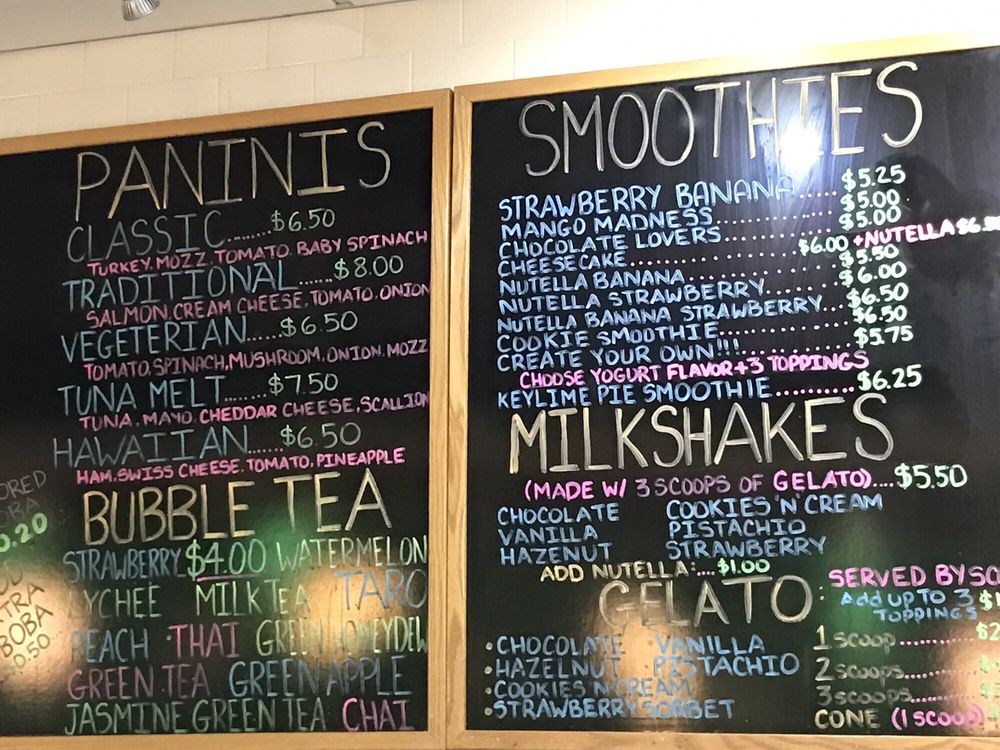 PANINIS
CLASSIC.......$6.50
TURKEY, MOZZ, TOMATO, BABY SPINACH
TRADITIONAL......$8.00
SALMON, CREAM CHEESE, TOMATO, ONION
VEGETERIAN.....$6.50
TOMATO, SPINACH, MUSHROOM, ONION, MOZZ
TUNA MELT.......$7.50
TUNA, MAYO, CHEDDAR CHEESE, SCALLION
HAWAIIAN....$6.50
HAM, SWISS CHEESE, TOMATO, PINEAPPLE
BUBBLE TEA
STRAWBERRY $4.00 WATERMELON
LYCHEE MILK TEA TARO
PEACH THAI GREEN HONEYDEW
GREEN TEA GREEN APPLE
JASMINE GREEN TEA CHAI
BOBA
$0.50
SMOOTHIES
STRAWBERRY BANANA......$5.25
MANGO MADNESS............$5.00
CHOCOLATE LOVERS............$5.00
CHEESECAKE..................$6.00 +NUTELLA
NUTELLA BANANA..............$5.50
NUTELLA STRAWBERRY.........$6.00
NUTELLA BANANA STRAWBERRY....$6.50
COOKIE SMOOTHIE..............$6.50
CREATE YOUR OWN!!!............$5.75
CHOOSE YOGURT FLAVOR + 3 TOPPINGS
KEYLIME PIE SMOOTHIE........$6.25
MILKSHAKES
(MADE W/ 3 SCOOPS OF GELATO)....$5.50
CHOCOLATE COOKIES 'N' CREAM
VANILLA PISTACHIO
HAZENUT STRAWBERRY
ADD NUTELLA:....$1.00
GELATO
• CHOCOLATE • VANILLA
• HAZELNUT • PISTACHIO
• COOKIES N' CREAM
• STRAWBERRY SORBET
SERVED BY
Add UP TO 3
TOPPINGS
1 scoop
2 scoops
3 scoops
CONE (1 scoop)